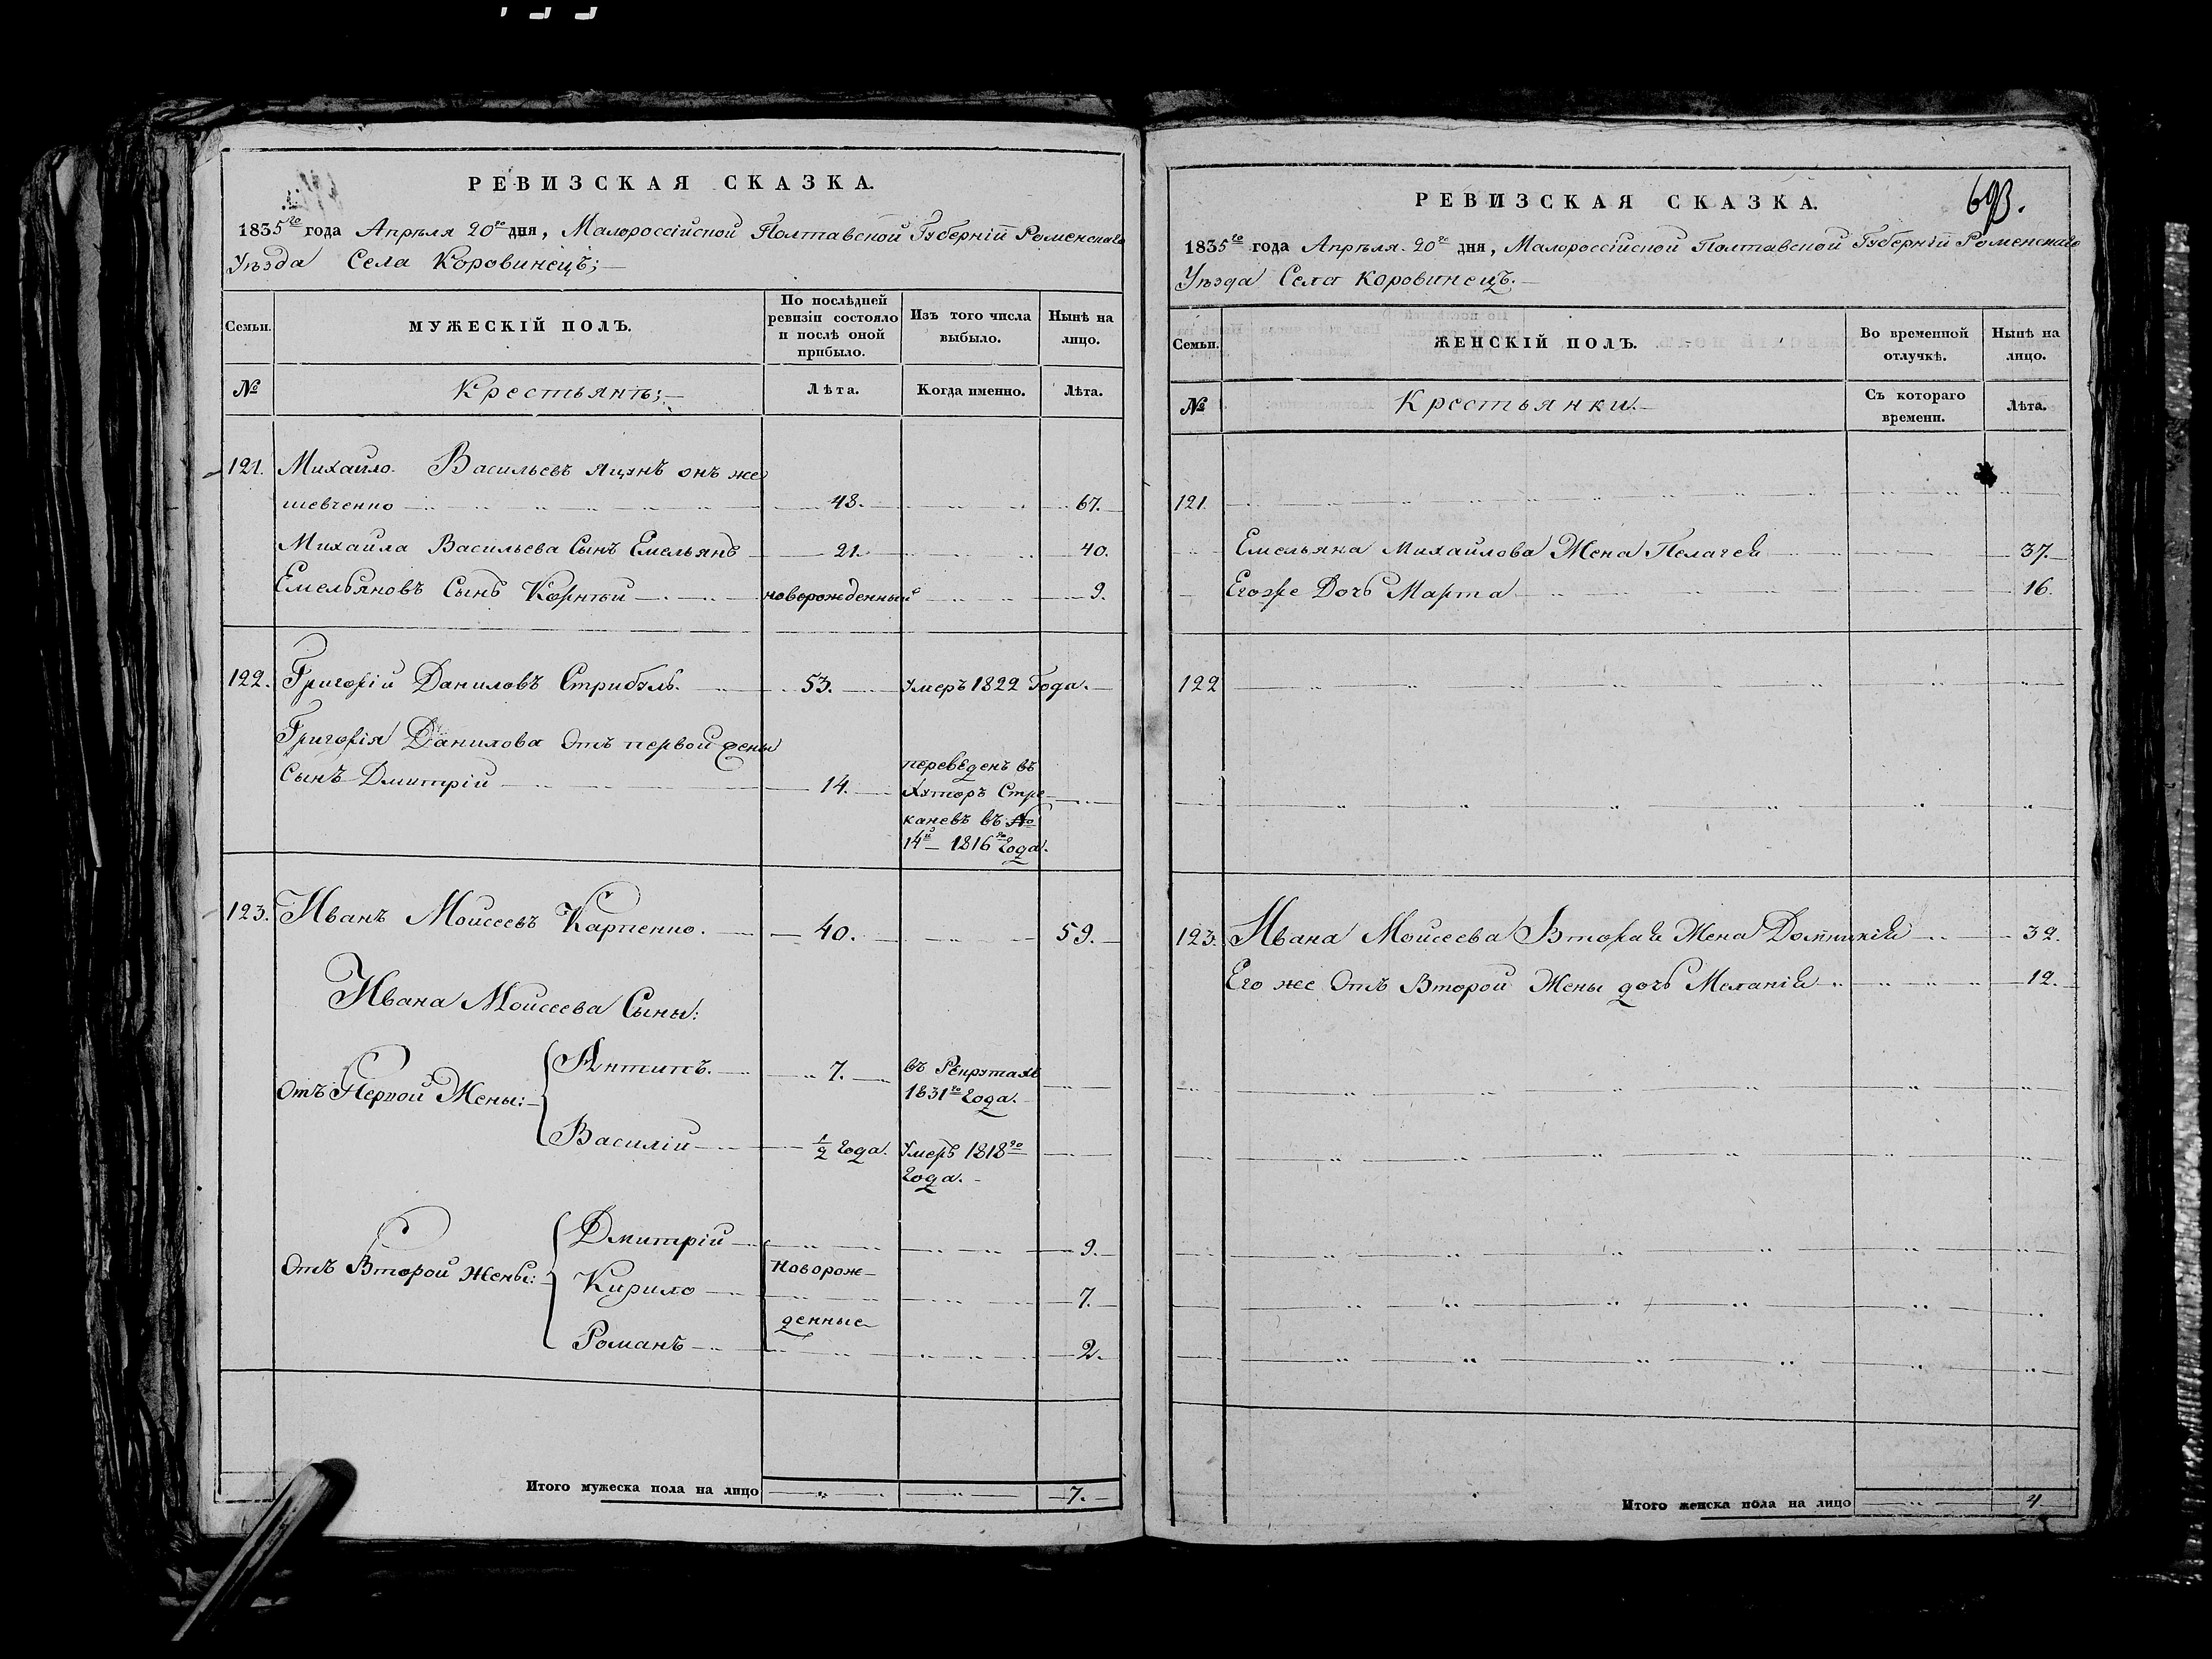 РЕВИЗСКАЯ СКАЗКА.
1835го года Апрѣля 20го дня, Малороссійской Полтавской Губерніи Роменскаго
Уѣзда Села Коровинецъ;
Семьи.
МУЖЕСКІЙ ПОЛЪ.
По послѣдней ревизіи состояло и послѣ оной прибыло.
Изъ того числа выбыло.
Нынѣ на лицо.
№
Крестьянъ;
Лѣта.
Когда именно.
Лѣта.
121. Михайло Васильевъ Яцунъ онъ же
шевченко 48. 67.
Михайла Васильева Сынъ Емельянъ 21. 40.
Емельяновъ Сынъ Корнѣй новорожденный 9.
122. Григорій Даниловъ Стрибуль. 53. Умеръ 1822 Года.
Григорія Данилова Отъ первой жены
Сынъ Дмитрій 14. переведенъ въ
Хуторъ
въ №
14й 1816го Года.
123. Иванъ Моисеевъ Карпенко. 40. 59.
Ивана Моисеева Сыны:
Отъ Первой Жены:
Антипъ. 7. въ Рекрутахъ
1831го Года.
Василій 1/2 Года. Умеръ 1818го
Года.
Отъ Второй Жены:
Дмитрій 9.
Новорож-
Кирило 7.
денные
Романъ 2.
Итого мужеска пола на лицо 7.
РЕВИЗСКАЯ СКАЗКА.
693.
1835го года Апрѣля 20го дня, Малороссійской Полтавской Губерніи Роменскаго
Уѣзда Села Коровинецъ.
Семьи.
ЖЕНСКІЙ ПОЛЪ.
Во временной отлучкѣ.
Нынѣ на лицо.
№
Крестьянки.
Съ котораго времени.
Лѣта.
121.
Емельяна Михайлова Жена Пелагея 37.
Его же Дочь Марта 16.
122
123. Ивана Моисеева Вторая Жена Домникія 32.
Его же Отъ Второй Жены дочь Меланія 12.
Итого женска пола на лицо 4